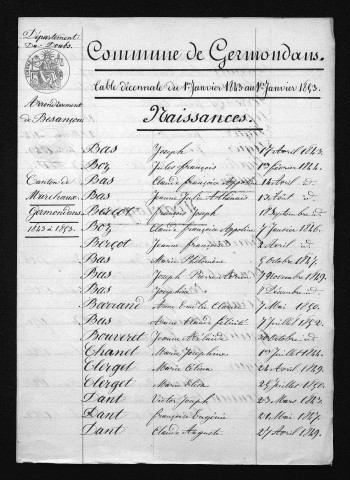 Département
Du Doubs.
Commune de Germondans.
Table décennale du 1er Janvier 1843 au 1er Janvier 1853.
Arrondissement
de Besançon
Naissances.
Canton de
Marchaux
Germondans
1843 à 1853.
Bas Joseph 17 Avril 1843.
Boz Jules françois 1er février 1844.
Bas Claude françois 14 Avril id
Bas Jeanne Julie
Berçot françois Joseph 18 Septembre id
Boz Claude françois 7 Janvier 1846.
Berçot Jeanne françoise 2 Avril id
Bas Marie Philomène 9 Octobre 1847.
Bas Joseph Pierre 7 Novembre 1849.
Bas Joséphine Décembre id
Barrand 7 Mai 1850.
Bas Marie Claude 7 Juillet 1852.
Bouveret Jeanne Octobre id
Chanet Marie Joséphine 1er Juillet 1844.
Clerget Marie Célina 24 Avril 1849.
Clerget Marie 25 Juillet 1850.
Dant Victor Joseph 23 Mars 1843.
Dant françoise Eugénie 21 Mai 1847.
Dant Claude Auguste 27 Avril 1849.